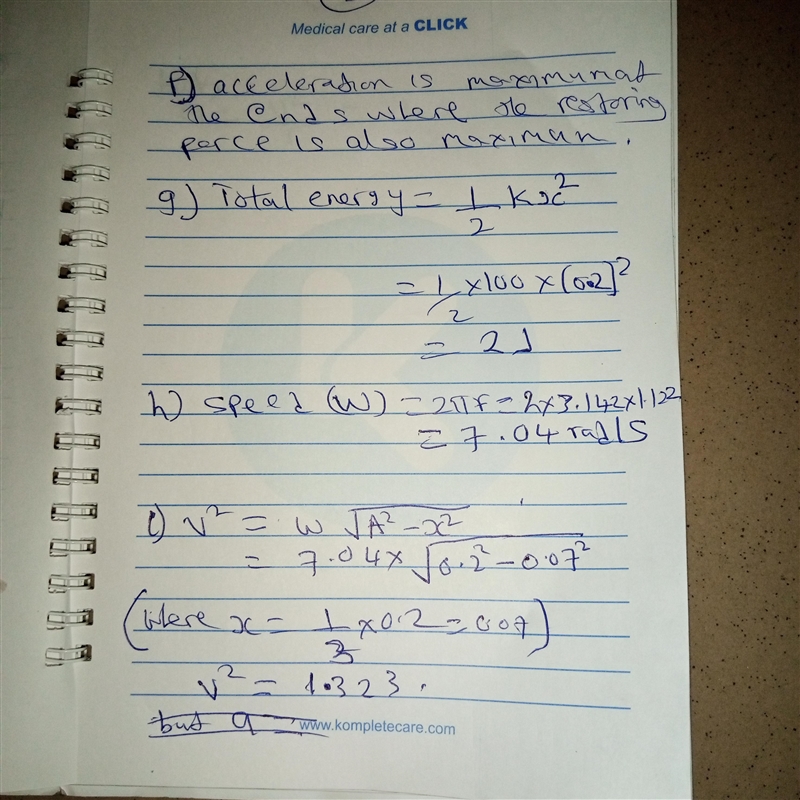 Medical care at a CLICK
f) acceleration is maximum at
the ends where the restoring
force is also maximum.
g) Total energy = 1/2 Kx²
= 1/2 × 100 × (0.2)²
= 2J
h) speed (W) = 2πf = 2×3.142×1.122
= 7.04 rad/s
i) V² = W √A² - x²
= 7.04 × √0.2² - 0.07²
(Where x = 1/3 × 0.2 = 0.07)
V² = 1.323.
but a =
www.kompletecare.com